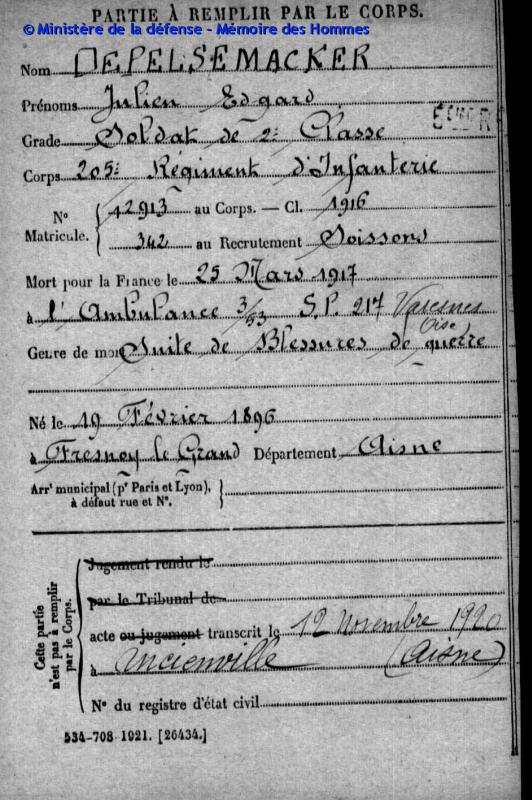 PARTIE À REMPLIR PAR LE CORPS.
© Ministère de la défense - Mémoire des Hommes
Nom DEPELSEMACKER
Prénoms Julien Edgard
Grade Soldat de 2e Classe
Corps 205e Régiment d'Infanterie
N° Matricule. { 12913 au Corps. — Cl. 1916
342 au Recrutement Soissons
Mort pour la France le 25 Mars 1917
à l'Ambulance 3/53 S.P. 217 Varesnes
Oise
Genre de mort Suite de Blessures de guerre
Né le 19 Février 1896
à Fresnoy le Grand Département Aisne
Arrt municipal (pr Paris et Lyon), à défaut rue et N°. }
Cette partie n'est pas à remplir par le Corps.
Jugement rendu le
par le Tribunal de
acte ou jugement transcrit le 12 Novembre 1920
à Ancienville (Aisne)
N° du registre d'état civil
534-708 1921. [26434.]